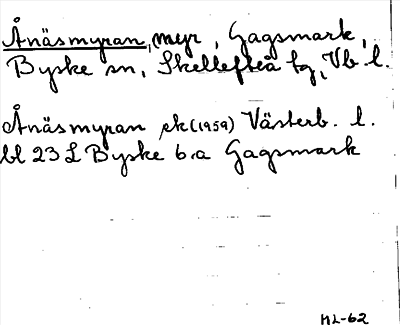 Ånäsmyran, myr, Gagsmark,
Byske sn, Skellefteå tg, Vb. l.
Ånäsmyran ek (1959) Västerb. l.
bl 23 L Byske 6 a Gagsmark
ML-62